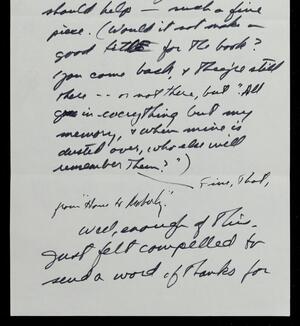 should help — such a fine
piece. (Would it not make a
good title for the book?
you come back, & they're still
there -- or not there, but "All
gone in everything but my
memory, & when mine is
dusted over, who else will
remember them?")
Fine, that,
from "Home to
Well, enough of this.
Just felt compelled to
send a word of thanks for